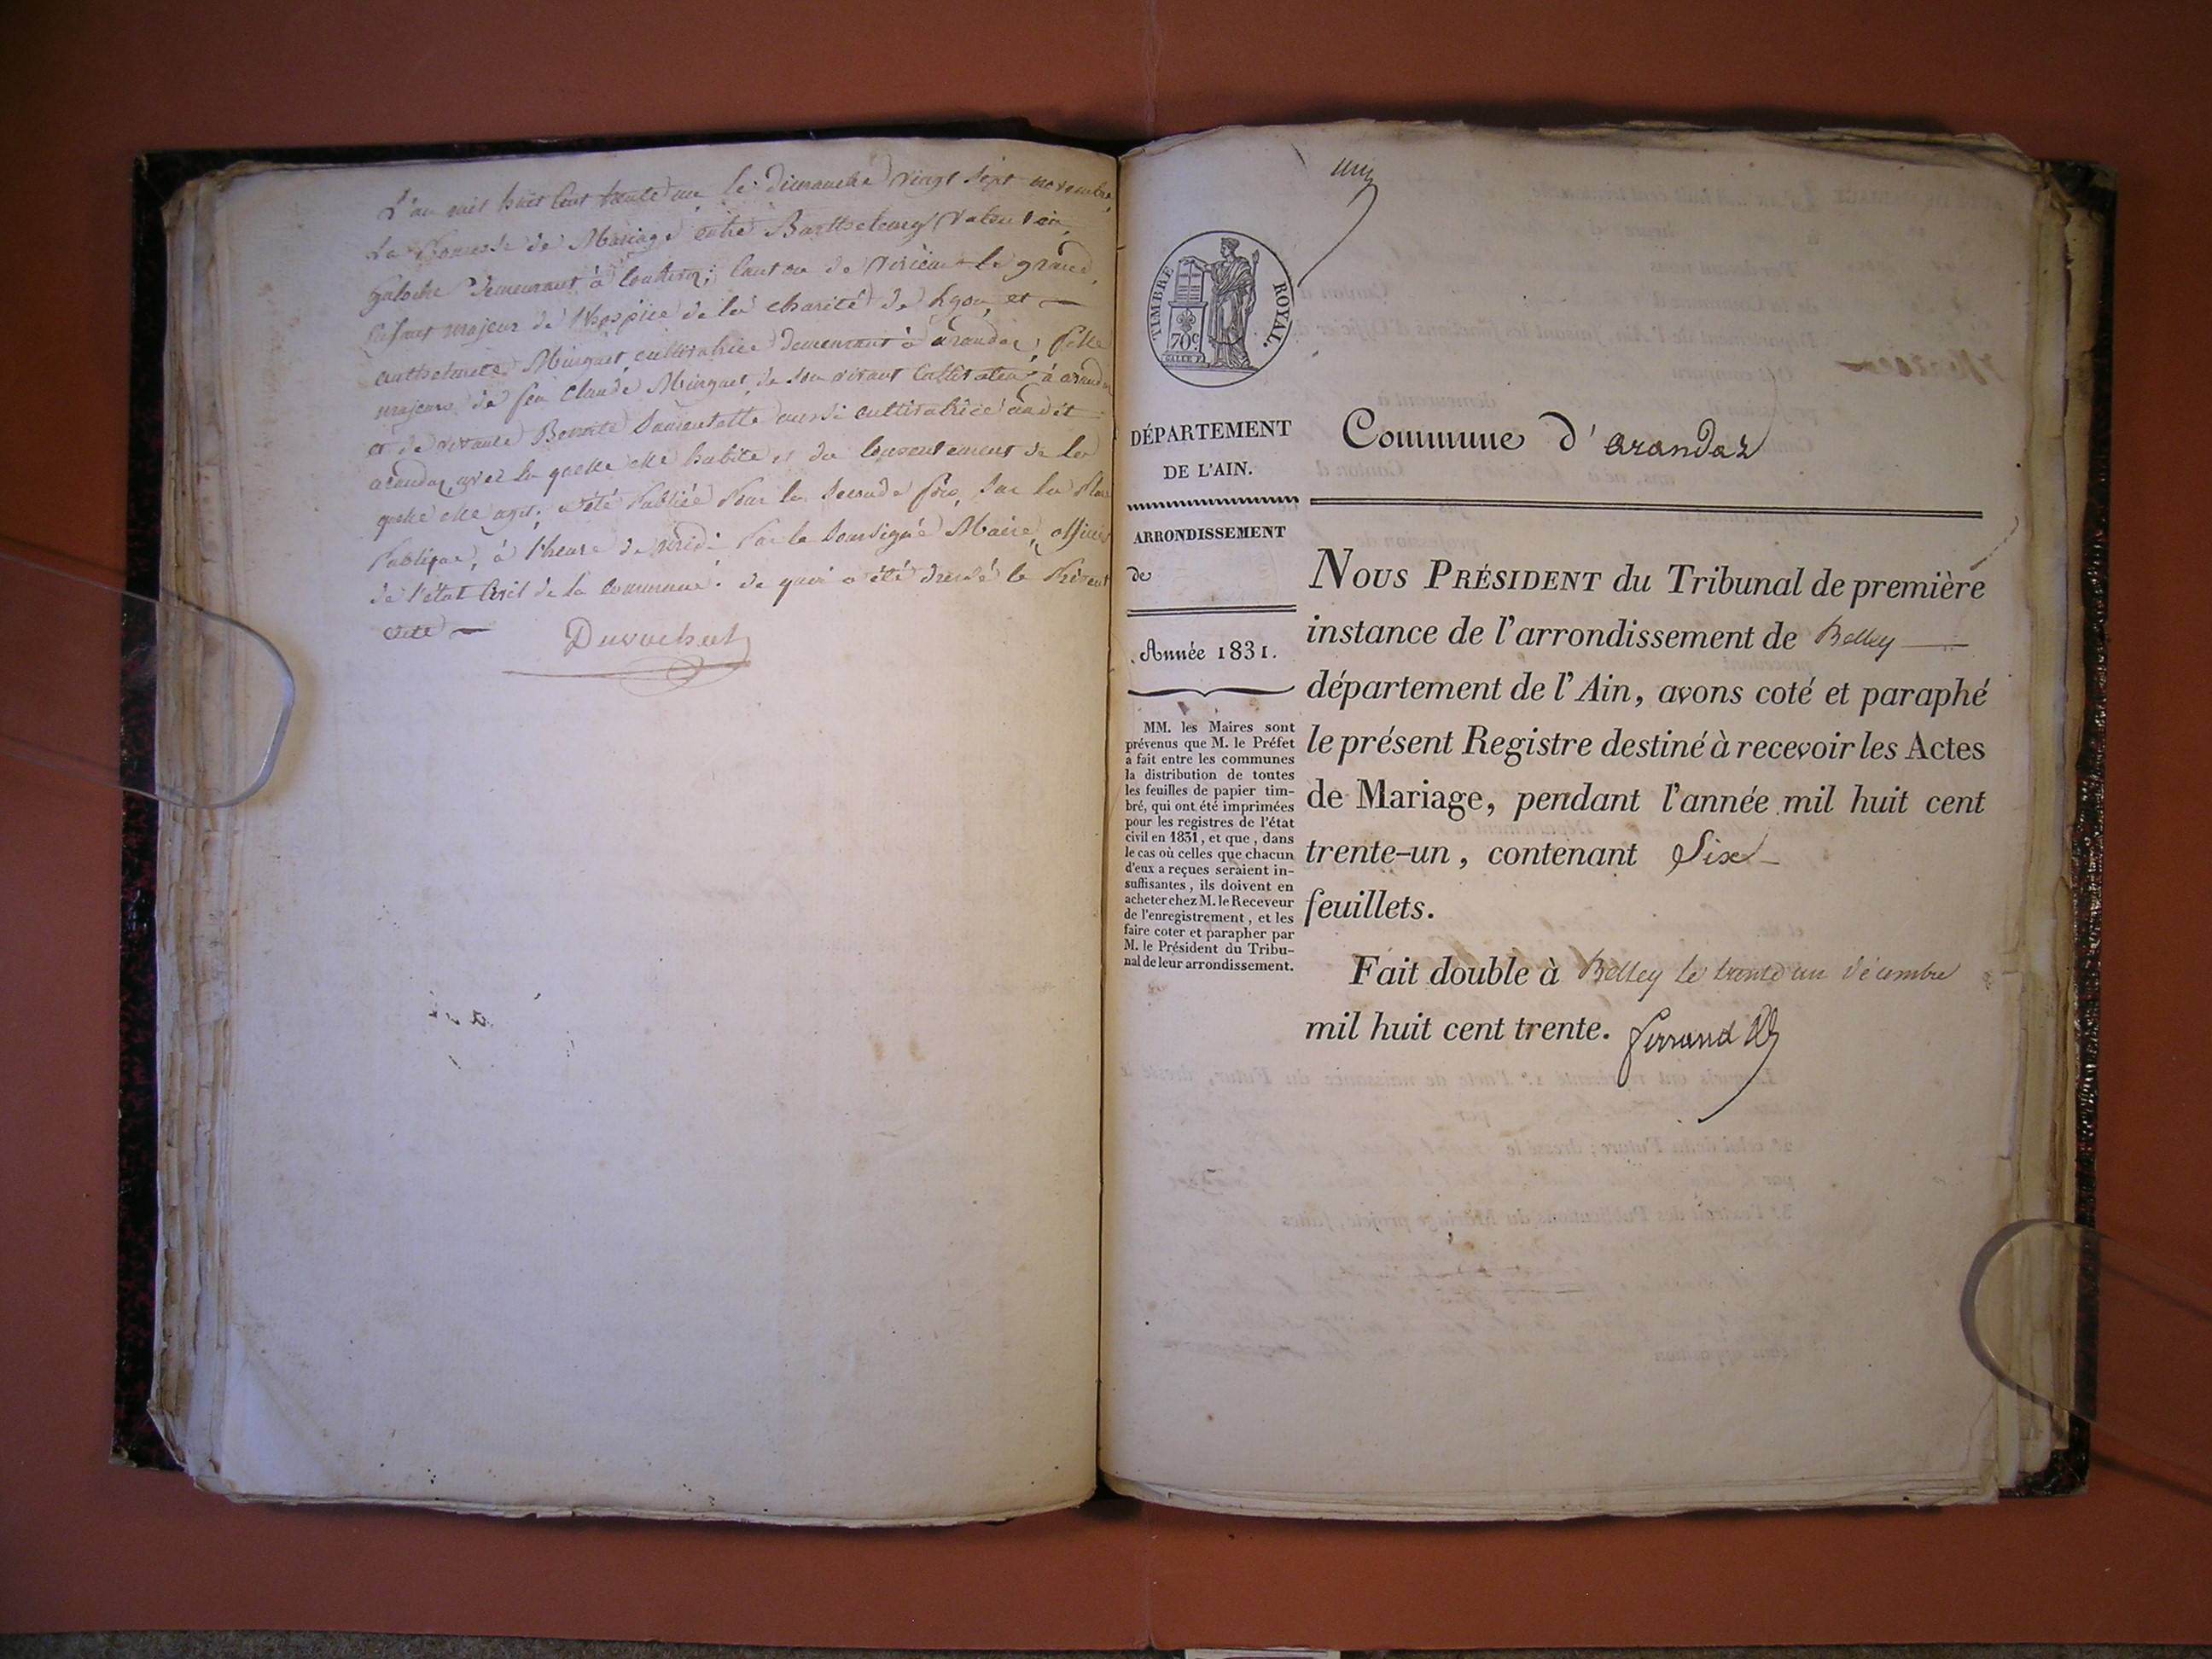 L'an mil huit cent trente un le dimanche vingt sept novembre,
La Promesse de Mariage entre Barthelemy Valentin
galoche demeurant à Contrev; Canton de Virieu-le grand,
Enfant majeur de l'hospice de la charité de Lyon, et —
anthelmete Minguet, cultivatrice demeurant à arandaz, fille
majeure de feu Claude Minguet, de son vivant Cultivateur à arandaz
et de vivante Benoite aussi cultivatrice audit
arandaz, avec la quelle elle habite et du Consentement de la
quelle elle agit; a été Publiée Pour la Seconde fois, Sur la Place
Publique, à l'heure de midi Par le Soussigné Maire, officier
de l'état Civil de la commune: de quoi a été dressé le Présent
acte —
Duvachat
un
TIMBRE ROYAL.
70 c.
DÉPARTEMENT
DE L'AIN.
ARRONDISSEMENT
de
Année 1831.
MM. les Maires sont
prévenus que M. le Préfet
a fait entre les communes
la distribution de toutes
les feuilles de papier tim-
bré, qui ont été imprimées
pour les registres de l'état
civil en 1831, et que, dans
le cas où celles que chacun
d'eux a reçues seraient in-
suffisantes, ils doivent en
acheter chez M. le Receveur
de l'enregistrement, et les
faire coter et parapher par
M. le Président du Tribu-
nal de leur arrondissement.
Commune d'arandaz
NOUS PRÉSIDENT du Tribunal de première
instance de l'arrondissement de Belley —
département de l'Ain, avons coté et paraphé
le présent Registre destiné à recevoir les Actes
de Mariage, pendant l'année mil huit cent
trente-un, contenant Six —
feuillets.
Fait double à Belley le trente un décembre
mil huit cent trente. ferrand